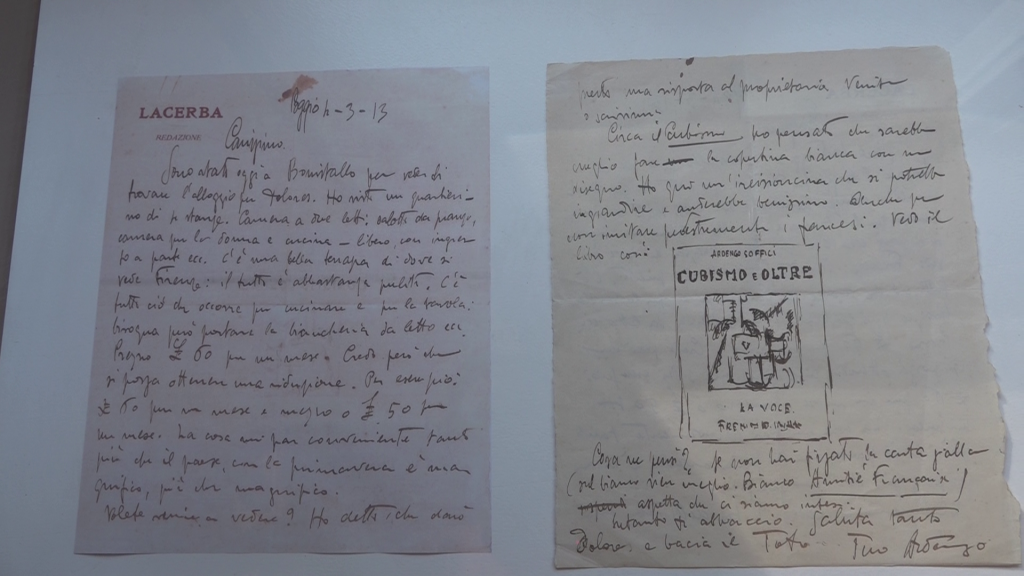 LACERBA
REDAZIONE
Poggio 4-3-13
Carissimo.
Sono stato oggi a Bonistallo per veder di
trovare l'alloggio per Dolores. Ho visto un quartieri-
no di 4 stanze. Camera a due letti, salotto da pranzo,
camera per la donna e cucina – libero, con ingres-
so a parte ecc. C'è una bella terrazza di dove si
vede Firenze: il tutto è abbastanza pulito. C'è
tutto ciò che occorre per cucinare e per la tavola:
bisogna però portare la biancheria da letto ecc.
Prezzo £ 60 per un mese. Credo però che
si possa ottenere una riduzione. Per esempio:
£ 60 per un mese e mezzo o £ 50 per
un mese. La cosa mi par conveniente tanto
più che il paese, con la primavera è ma-
gnifico, più che magnifico.
Volete venire a vedere? Ho detto che darò
presto una risposta al proprietario. Venite
o scrivimi.
Circa il Cubismo ho pensato che sarebbe
meglio fare la copertina bianca con un
disegno. Ho qui un'incisioncina che si potrebbe
ingrandire e andrebbe benissimo. Anche per
non imitare i francesi. Vedo il
libro così
ARDENGO SOFFICI
CUBISMO E OLTRE
LA VOCE
FIRENZE
Cosa ne pensi? Se non hai fissato la carta gialla
(sul bianco viene meglio. Bianco
aspetta che ci siamo intesi.
Intanto ti abbraccio. Saluta tanto
Dolores e bacia il Totò. Tuo Ardengo